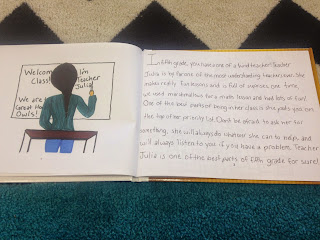 Welcome
Class!
I'm
Teacher
Julia
We are
Great Ho
Owls!
In fifth grade, you have one of a kind teacher! Teacher
Julia is by far one of the most understanding teachers ever. She
makes really fun lessons and is full of surprises, one time,
we used marshmallows for a math lesson and had lots of fun!
One of the best parts of being in her class is she puts you on
the top of her priority list. Don't be afraid to ask her for
something, she will always do whatever she can to help, and
will always listen to you if you have a problem. Teacher
Julia is one of the best parts of fifth grade for sure!